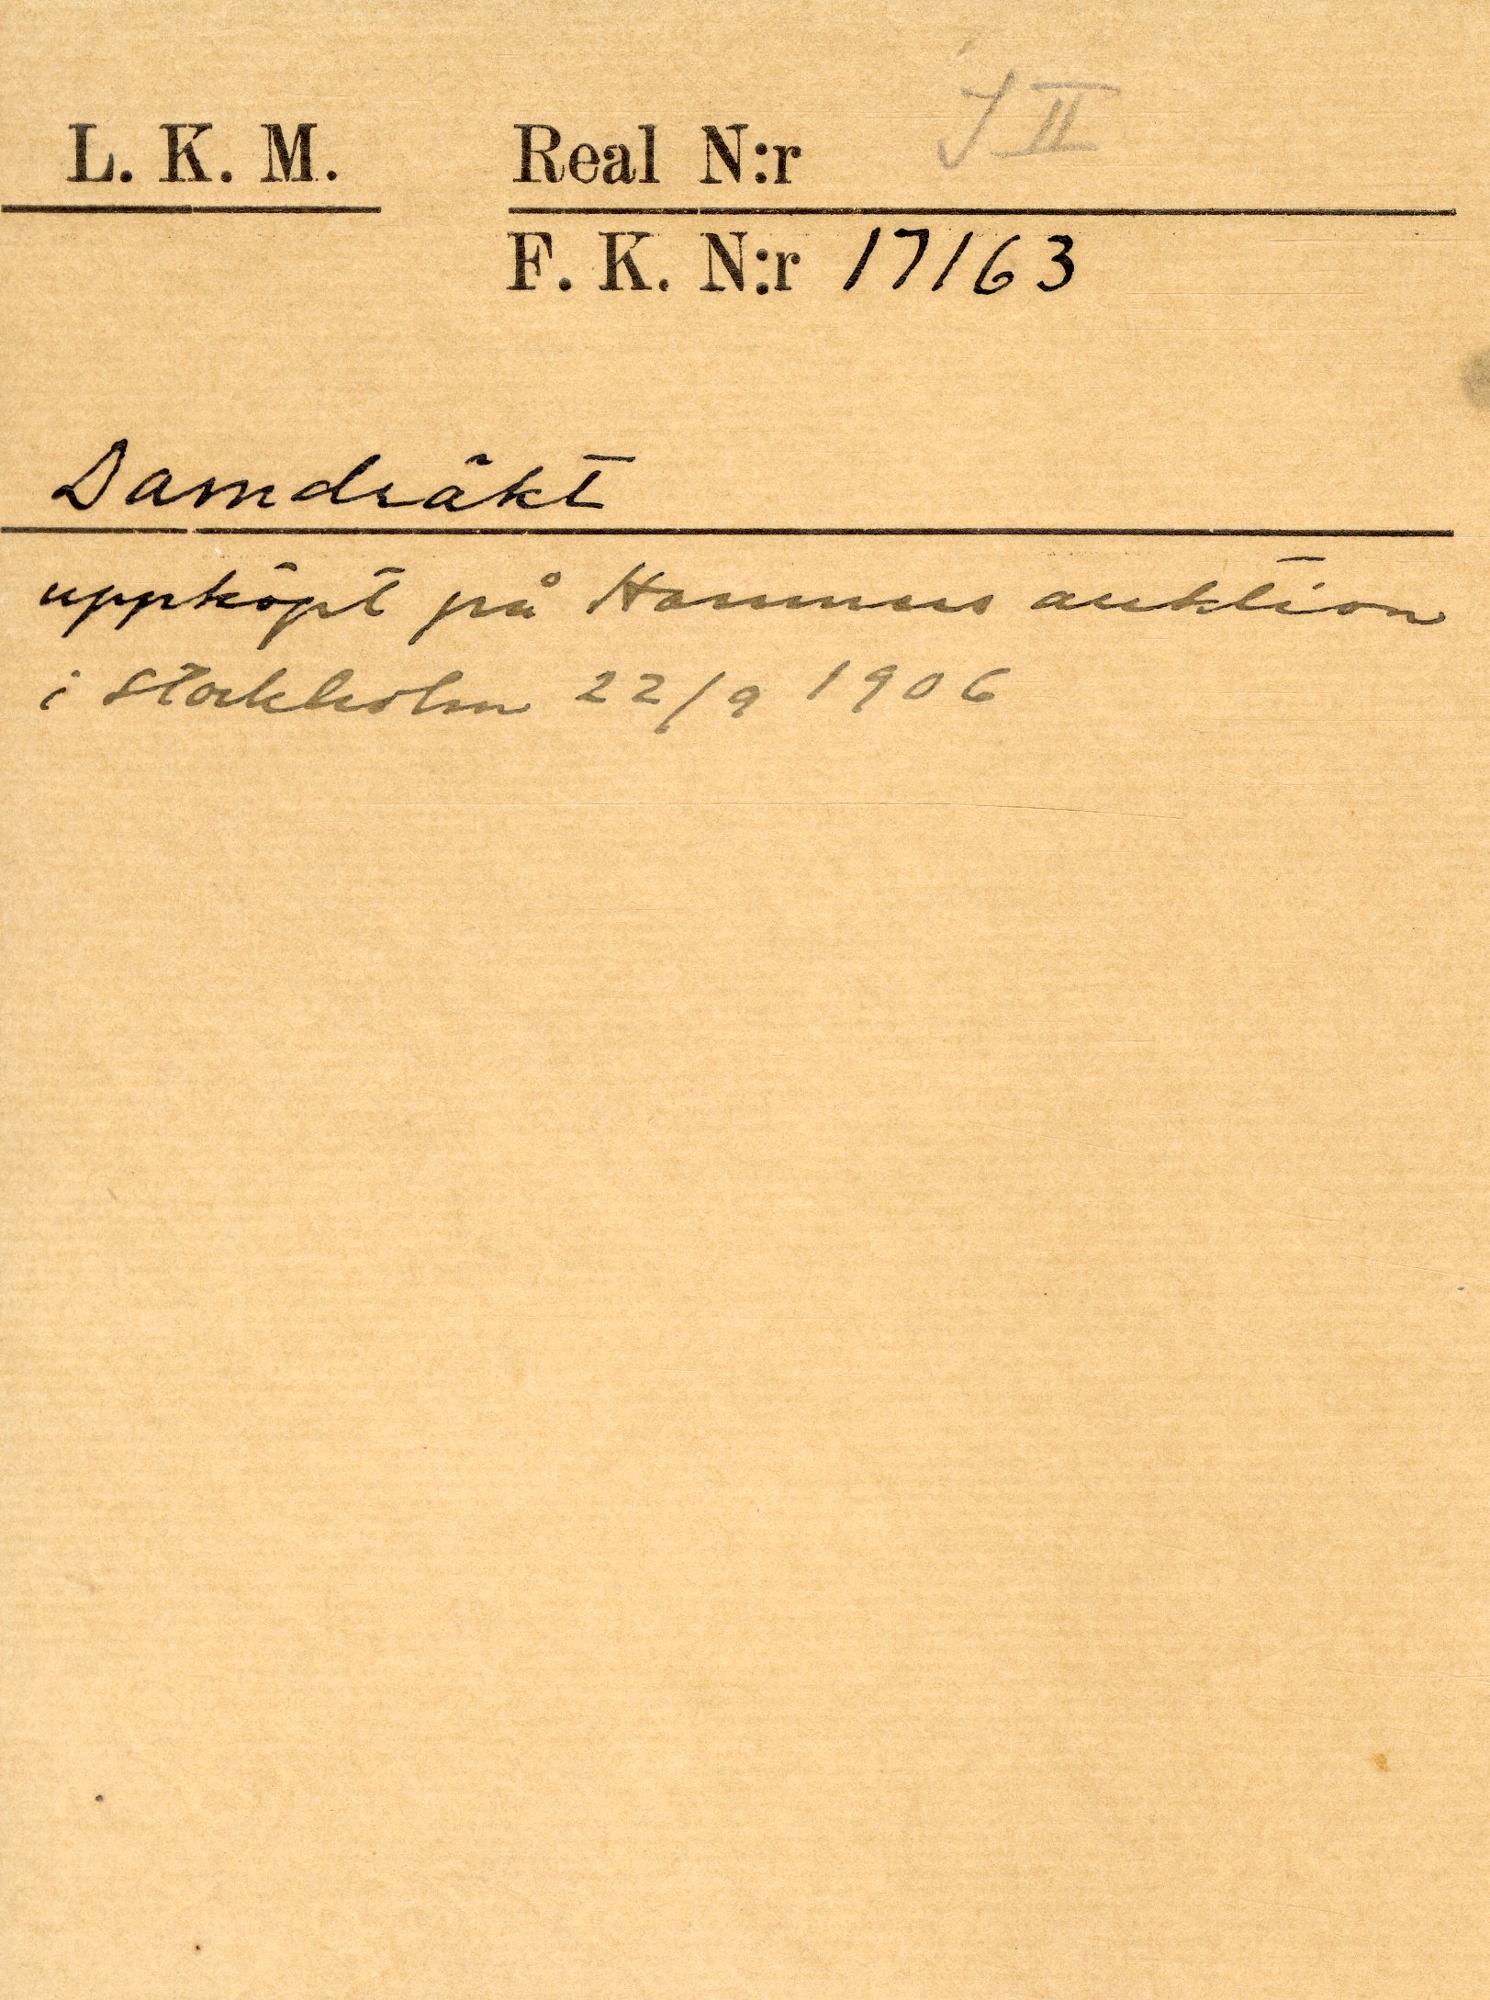 L. K. M. Real N:r J II
F. K. N:r 17163
Damdräkt
uppköpt på Hammers auktion
i Stockholm 22/9 1906